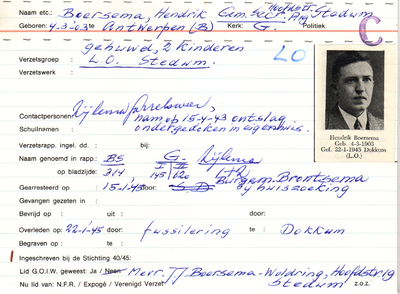 Naam etc.: Boersema, Hendrik Gem. Secr. Stedum
Geboren: 4-3-03 te Antwerpen (B) Kerk: G. Politiek
C
gehuwd, 2 kinderen
LO
Verzetsgroep : L.O. Stedum.
Verzetswerk :
Contactpersonen: Dijlema
Schuilnamen : nam op 15-4-43 ontslag
ondergedoken in eigen huis.
Hendrik Boersema
Geb. 4-3-1903
Gef. 22-1-1945 Dokkum
(L.O.)
Verzetsrapp. ingel. dd. : bij:
Naam genoemd in rapp.: BS G. Dijlema
op bladzijde: 314, I 145 II 620
Burgem. Brontsema
Gearresteerd op : 15-1-45 door: S D bij huiszoeking
Gevangen gezeten in :
Bevrijd op : uit : door:
Overleden op : 22-1-45 door: fussilering te : Dokkum
Begraven op : te :
Ingeschreven bij de Stichting 40/45:
Lid G.O.I.W. geweest: Ja / Neen Mevr. Boersema-Woldring, Hoofdstr.
Nu lid van: N.F.R. / Expogé / Verenigd Verzet Stedum z.o.z.